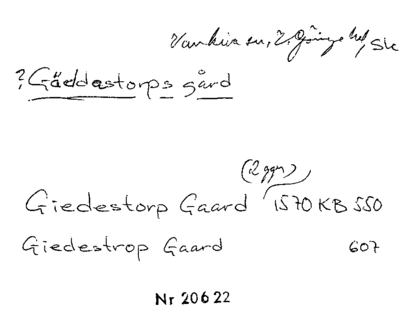 Vankiva sn, V. Göinge hd, Sk
? Gäddastorps gård
(2 ggr)
Giedestorp Gaard 1570 KB 550
Giedestrop Gaard 607
Nr 20622